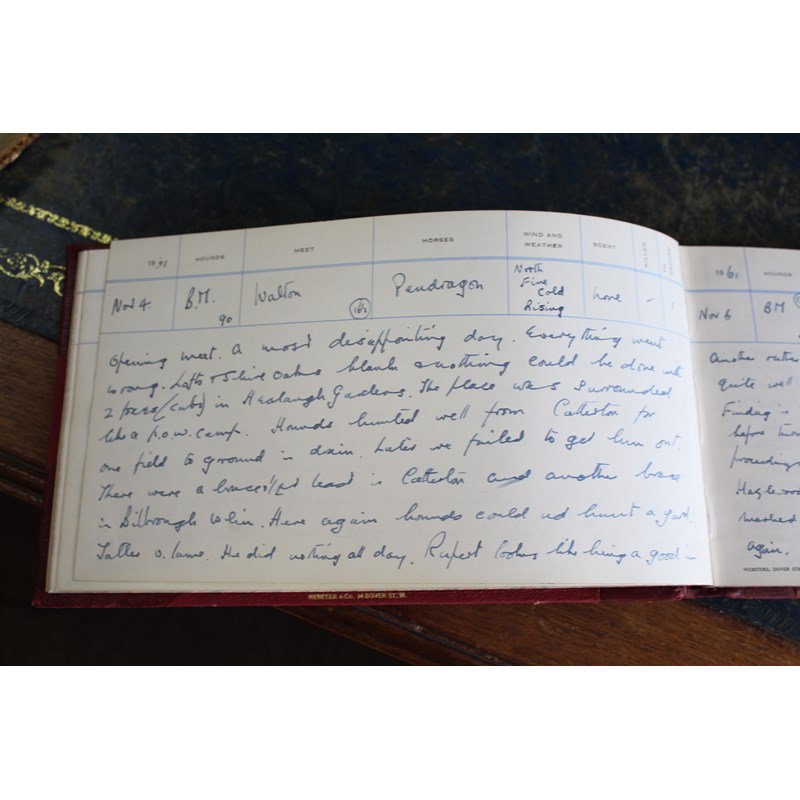 19 HOUNDS MEET HORSES WIND AND WEATHER SCENT
Nov 4. B.M. 90 Walton 16½ Pendragon North Fine Cold Rising None - 1
Opening meet. A most disappointing day. Everything went
wrong. Lofts & Shire Oaks blank & nothing could be done with
2 foxes (cubs) in Healaugh Gardens. The place was surrounded
like a p.o.w. camp. Hounds hunted well from Catterton for
one field to ground in drain. Later we failed to get him out.
There were a brace at least in Catterton and another brace
in Bilbrough Whin. Here again hounds could not hunt a yard.
v. lame. He did nothing all day. Rupert looks like being a good
WEBSTER & CO. 34 DOVER ST., W.
1961 HOUNDS
Nov 6 BM
Another rather
quite well
Finding
before
proceedings
Hazlewood
marked
again.
WEBSTERS, DOVER